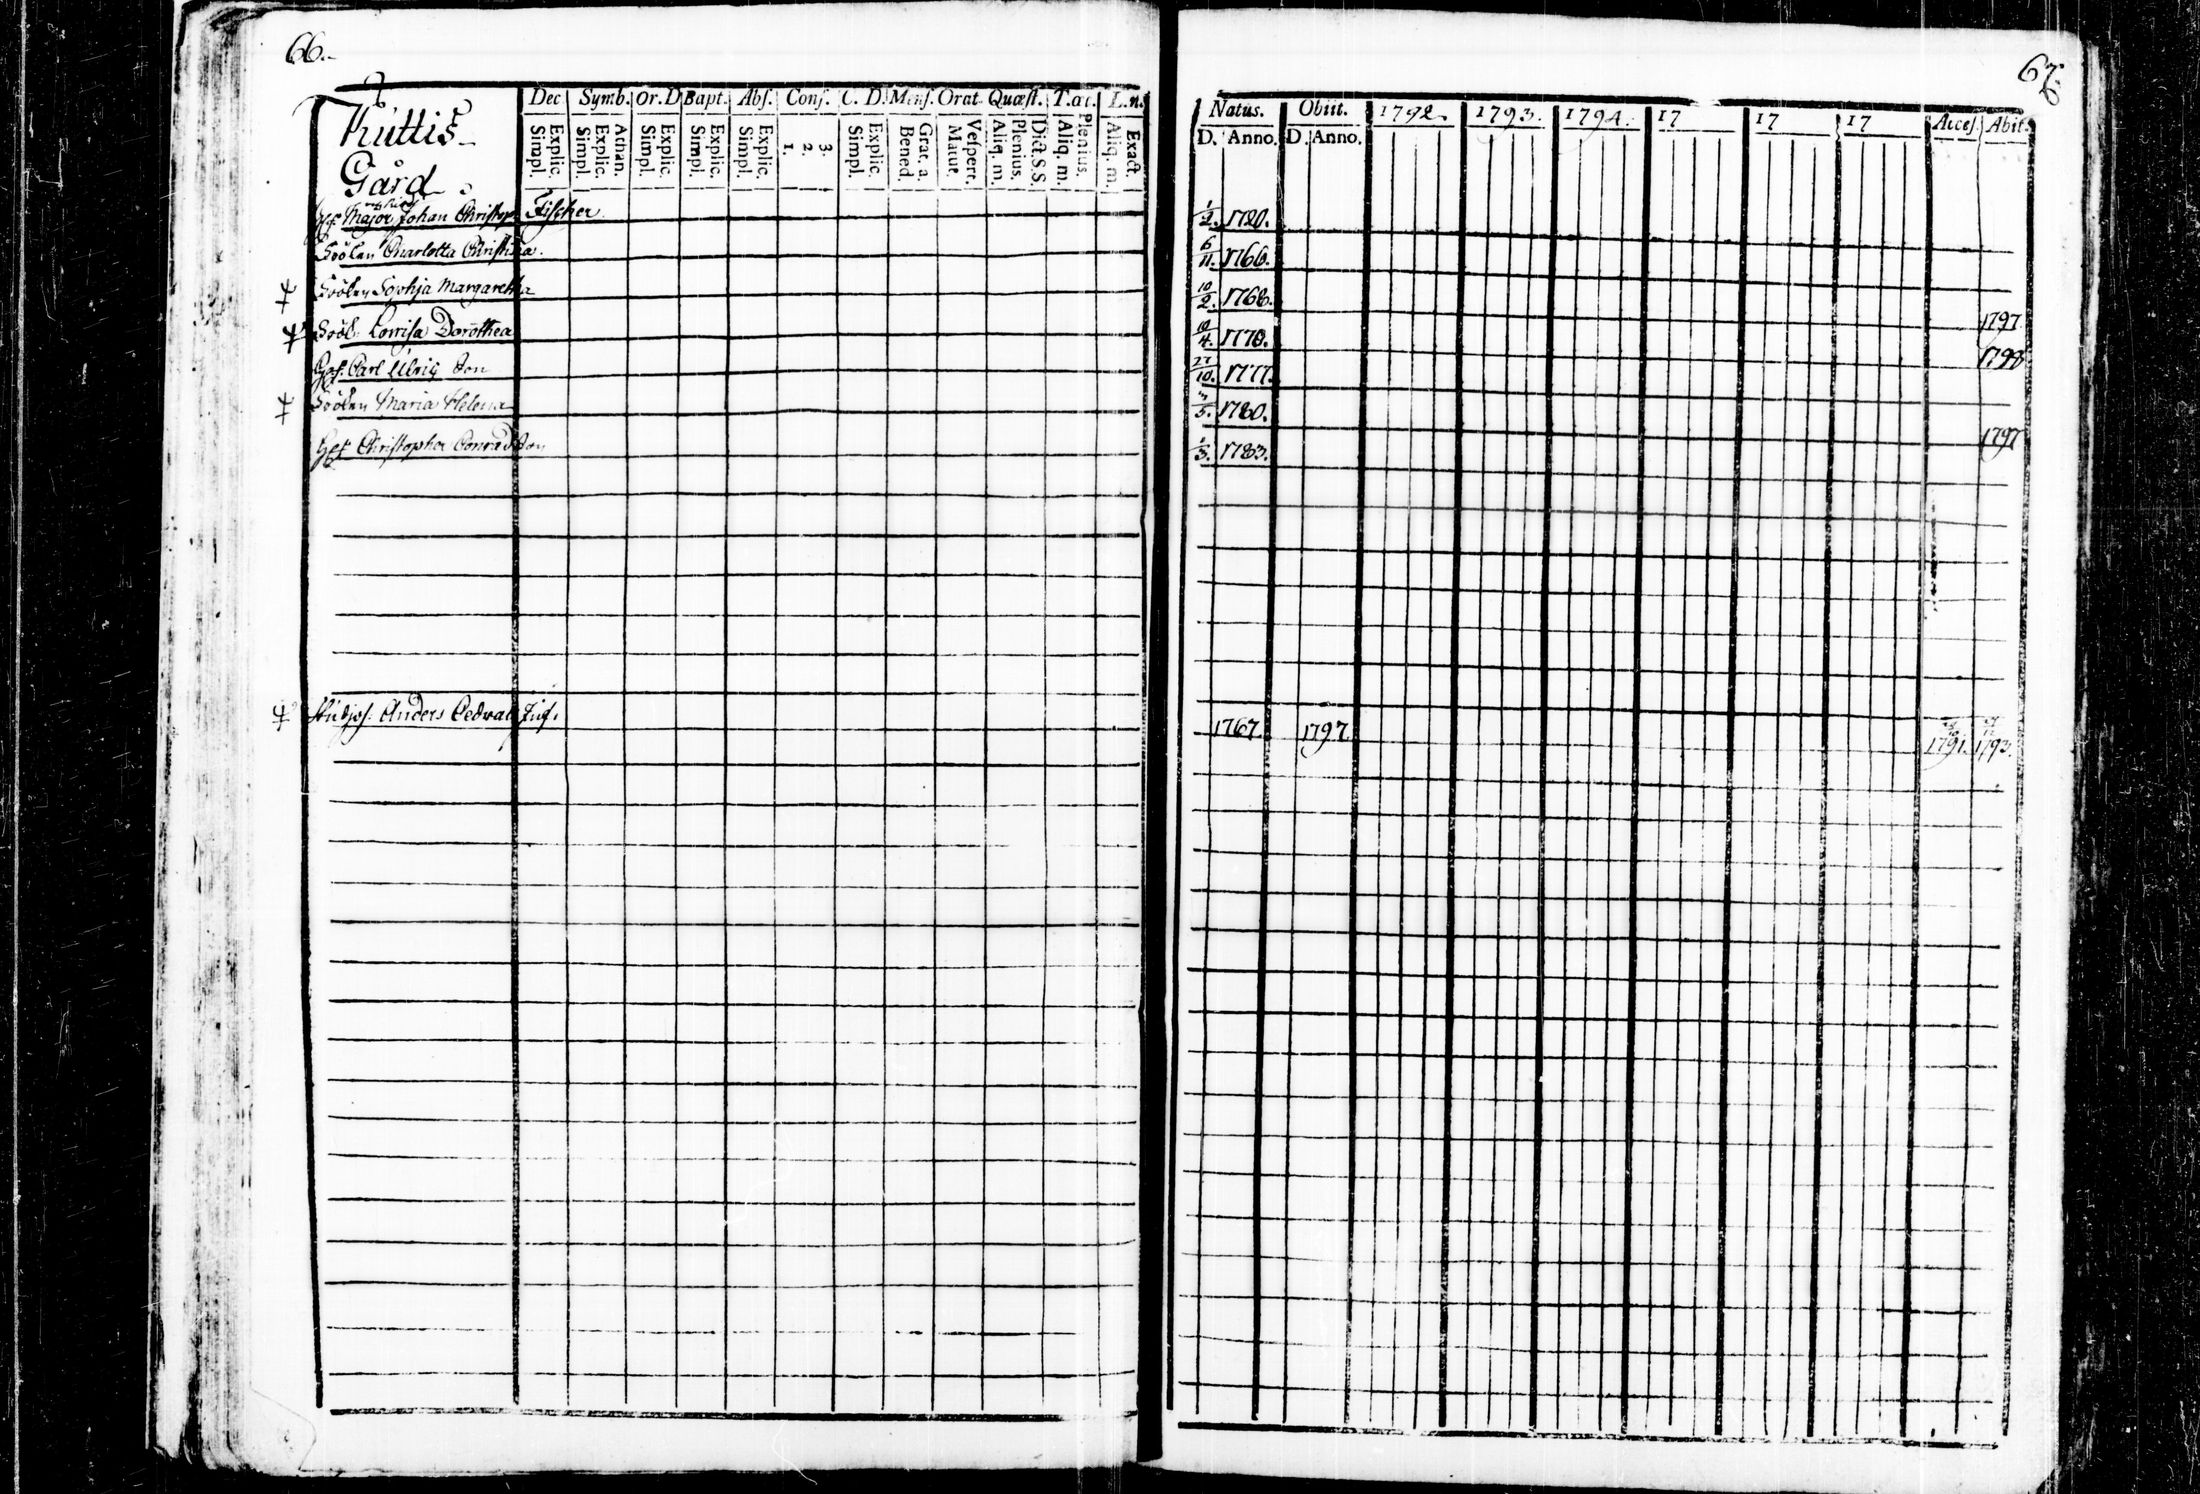 66.
Dec. Symb. Or. D Bapt. Abs. Conf. C. D. Mens. Orat. Quæst. T. L. n.
Simpl. Explic. Simpl. Explic. Athan. Simpl. Explic. Simpl. Explic. Simpl. Explic. 1. 2. 3. Simpl. Explic. Bened. Grat. a. Matut. Vespert. Aliq. m. Plenius. Dict. S. S. Aliq. m. Plenius. Aliq. m. Exact.
Kuttis
Gård
Major Johan Christoph Fischer.
Fröken Charlotta Christina.
Fröken Sophja Margaretha
Frök. Lovisa Dorothea
Carl Ulric Son
Fröken Maria Helena
Christopher Conrad Son
Studjos. Anders Cedwall
67.
Natus. Obiit. 1792. 1793. 1794. 17 17 17 Acces. Abit.
D. Anno. D. Anno.
1/2. 1720.
6/11. 1766.
10/2. 1768.
1797
10/4. 1770.
1798
27/10. 1777.
5. 1780.
1797
1/3. 1783.
1767. 1797. 1791. 1793.